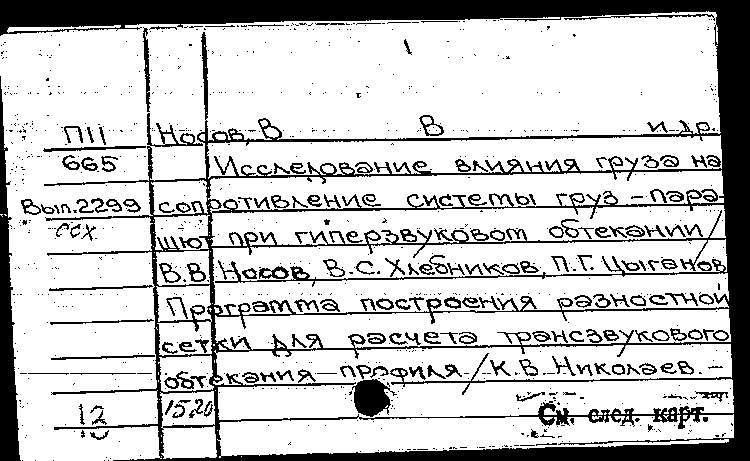 П11 Носов, В В и др.
665 Исследование влияния груза на
Вып.2299 сопротивление системы груз - пара-
ссх шют при гиперзвуковом обтекании /
В.В. Носов, В.С. Хлебников, П.Г. Цыганов
Программа построения разностной
сетки для расчета трансзвукового
обтекания профиля / К.В. Николаев. -
12 1520 См. след. карт.